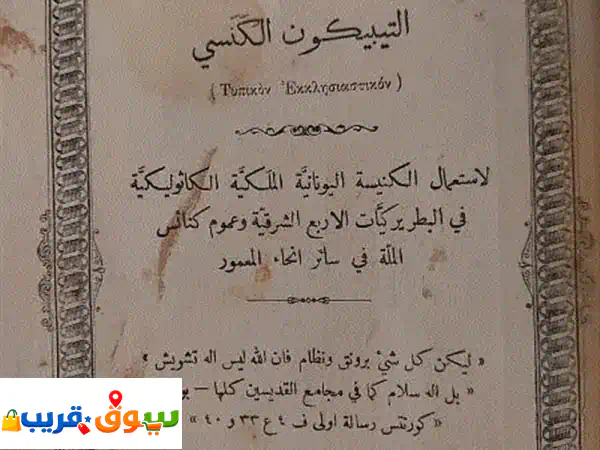 التيبيكون الكَنَسي
( Τυπικὸν Ἐκκλησιαστικόν )
لاستعمال الكنيسة اليونانيَّة الملَكيَّة الكاثوليكيَّة
في البطريركيَّات الاربع الشرقيَّة وعموم كنائس
الملَّة في سائر انحاء المعمور
« ليكن كل شيء برونق ونظام فان الله ليس اله تشويش »
« بل اله سلام كما في مجامع القديسين كلها –
« كورنتس رسالة اولى ف ٤ ع ٣٣ و ٤٠ »
سوق قريب